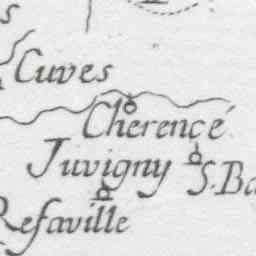 Cuves
Cherencé
Juvigny
S. Ba
Refaville